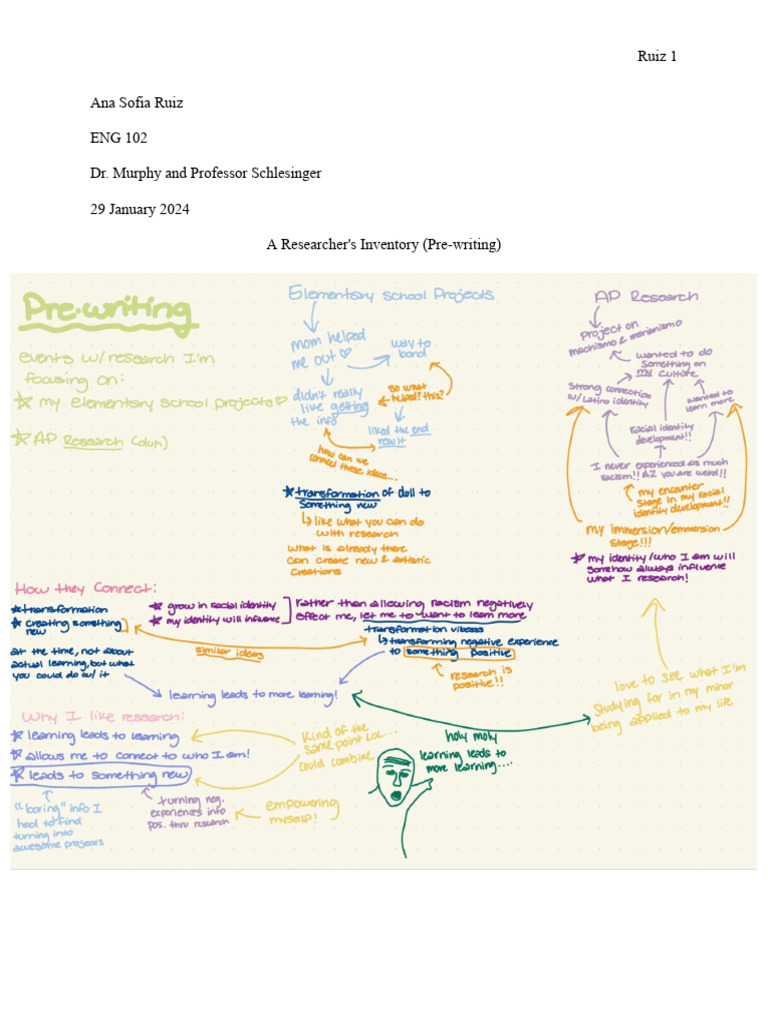 Ruiz 1
Ana Sofía Ruiz
ENG 102
Dr. Murphy and Professor Schlesinger
29 January 2024
A Researcher's Inventory (Pre-writing)
Pre-writing
events w/ research I'm
focusing on:
★ my elementary school projects♡
★ AP Research (duh)
Elementary school Projects
mom helped
me out ♡
way to
bond
didn't really
like getting
the info
so what
helped? this?
liked the end
result
how can we
connect these ideas...
★ transformation of doll to
something new
↳ like what you can do
with research
what is already there
can create new & artistic
creations
AP Research
Project on
machismo & marianismo
wanted to do
something on
my culture
Strong connection
w/ Latino identity
wanted to
learn more
racial identity
development!!
I never experienced as much
racism!! AZ you are weird!!
my encounter
stage in my racial
identity development!!
my immersion/emmersion
stage!!!
★ my identity/who I am will
somehow always influence
what I research!
How they Connect:
★ transformation
★ creating something
new
★ grow in racial identity
★ my identity will influence
rather than allowing racism negatively
effect me, let me to want to learn more
transformation vibesss
↳ transforming negative experience
to something positive
similar ideas
at the time, not about
actual learning, but what
you could do w/ it
research is
positive!!
learning leads to more learning!
love to see what I'm
studying for in my minor
being applied to my life
Why I like research:
★ learning leads to learning
★ allows me to connect to who I am!
★ leads to something new
Kind of the
same point LOL...
could combine
holy moly
learning leads to
more learning....
"boring" info I
had to find
turning into
awesome projects
turning neg.
experiences into
pos. thru research
empowering
myself!